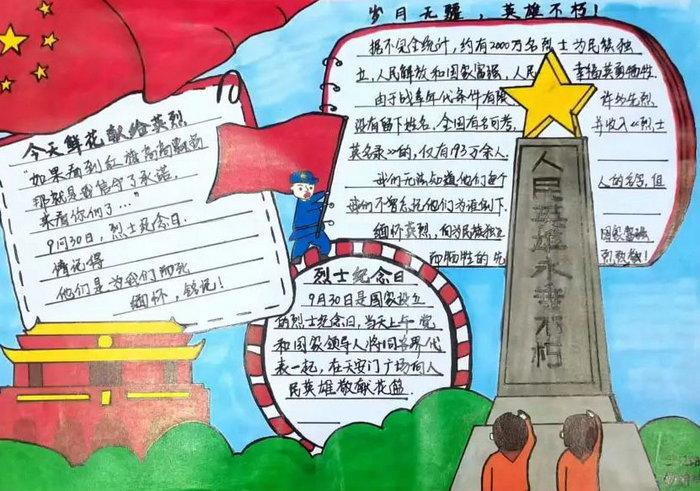 岁月无疆，英雄不朽！
据不完全统计，约有2000万名烈士为民族独
立，人民解放和国家富强，人民 幸福英勇牺牲
由于战争年代条件有限 许多先烈
没有留下姓名，全国有名可考， 并收入《烈士
英名录》的，仅有193万余人。
我们无法知道他们每个 人的名字，但
我们不曾忘记他们为谁倒下
缅怀英烈，向为民族独立 国家富强
而牺牲的先 烈致敬！
今天鲜花献给英烈
"如果看到红旗高高飘扬
那就是我信守了承诺，
来看你们了…"
9月30日，烈士纪念日.
请记得
他们是为我们而死
缅怀，铭记！
烈士纪念日
9月30日是国家设立
的烈士纪念日，当天上午党
和国家领导人将同各界代
表一起，在天安门广场向人
民英雄敬献花篮
人民英雄永垂不朽